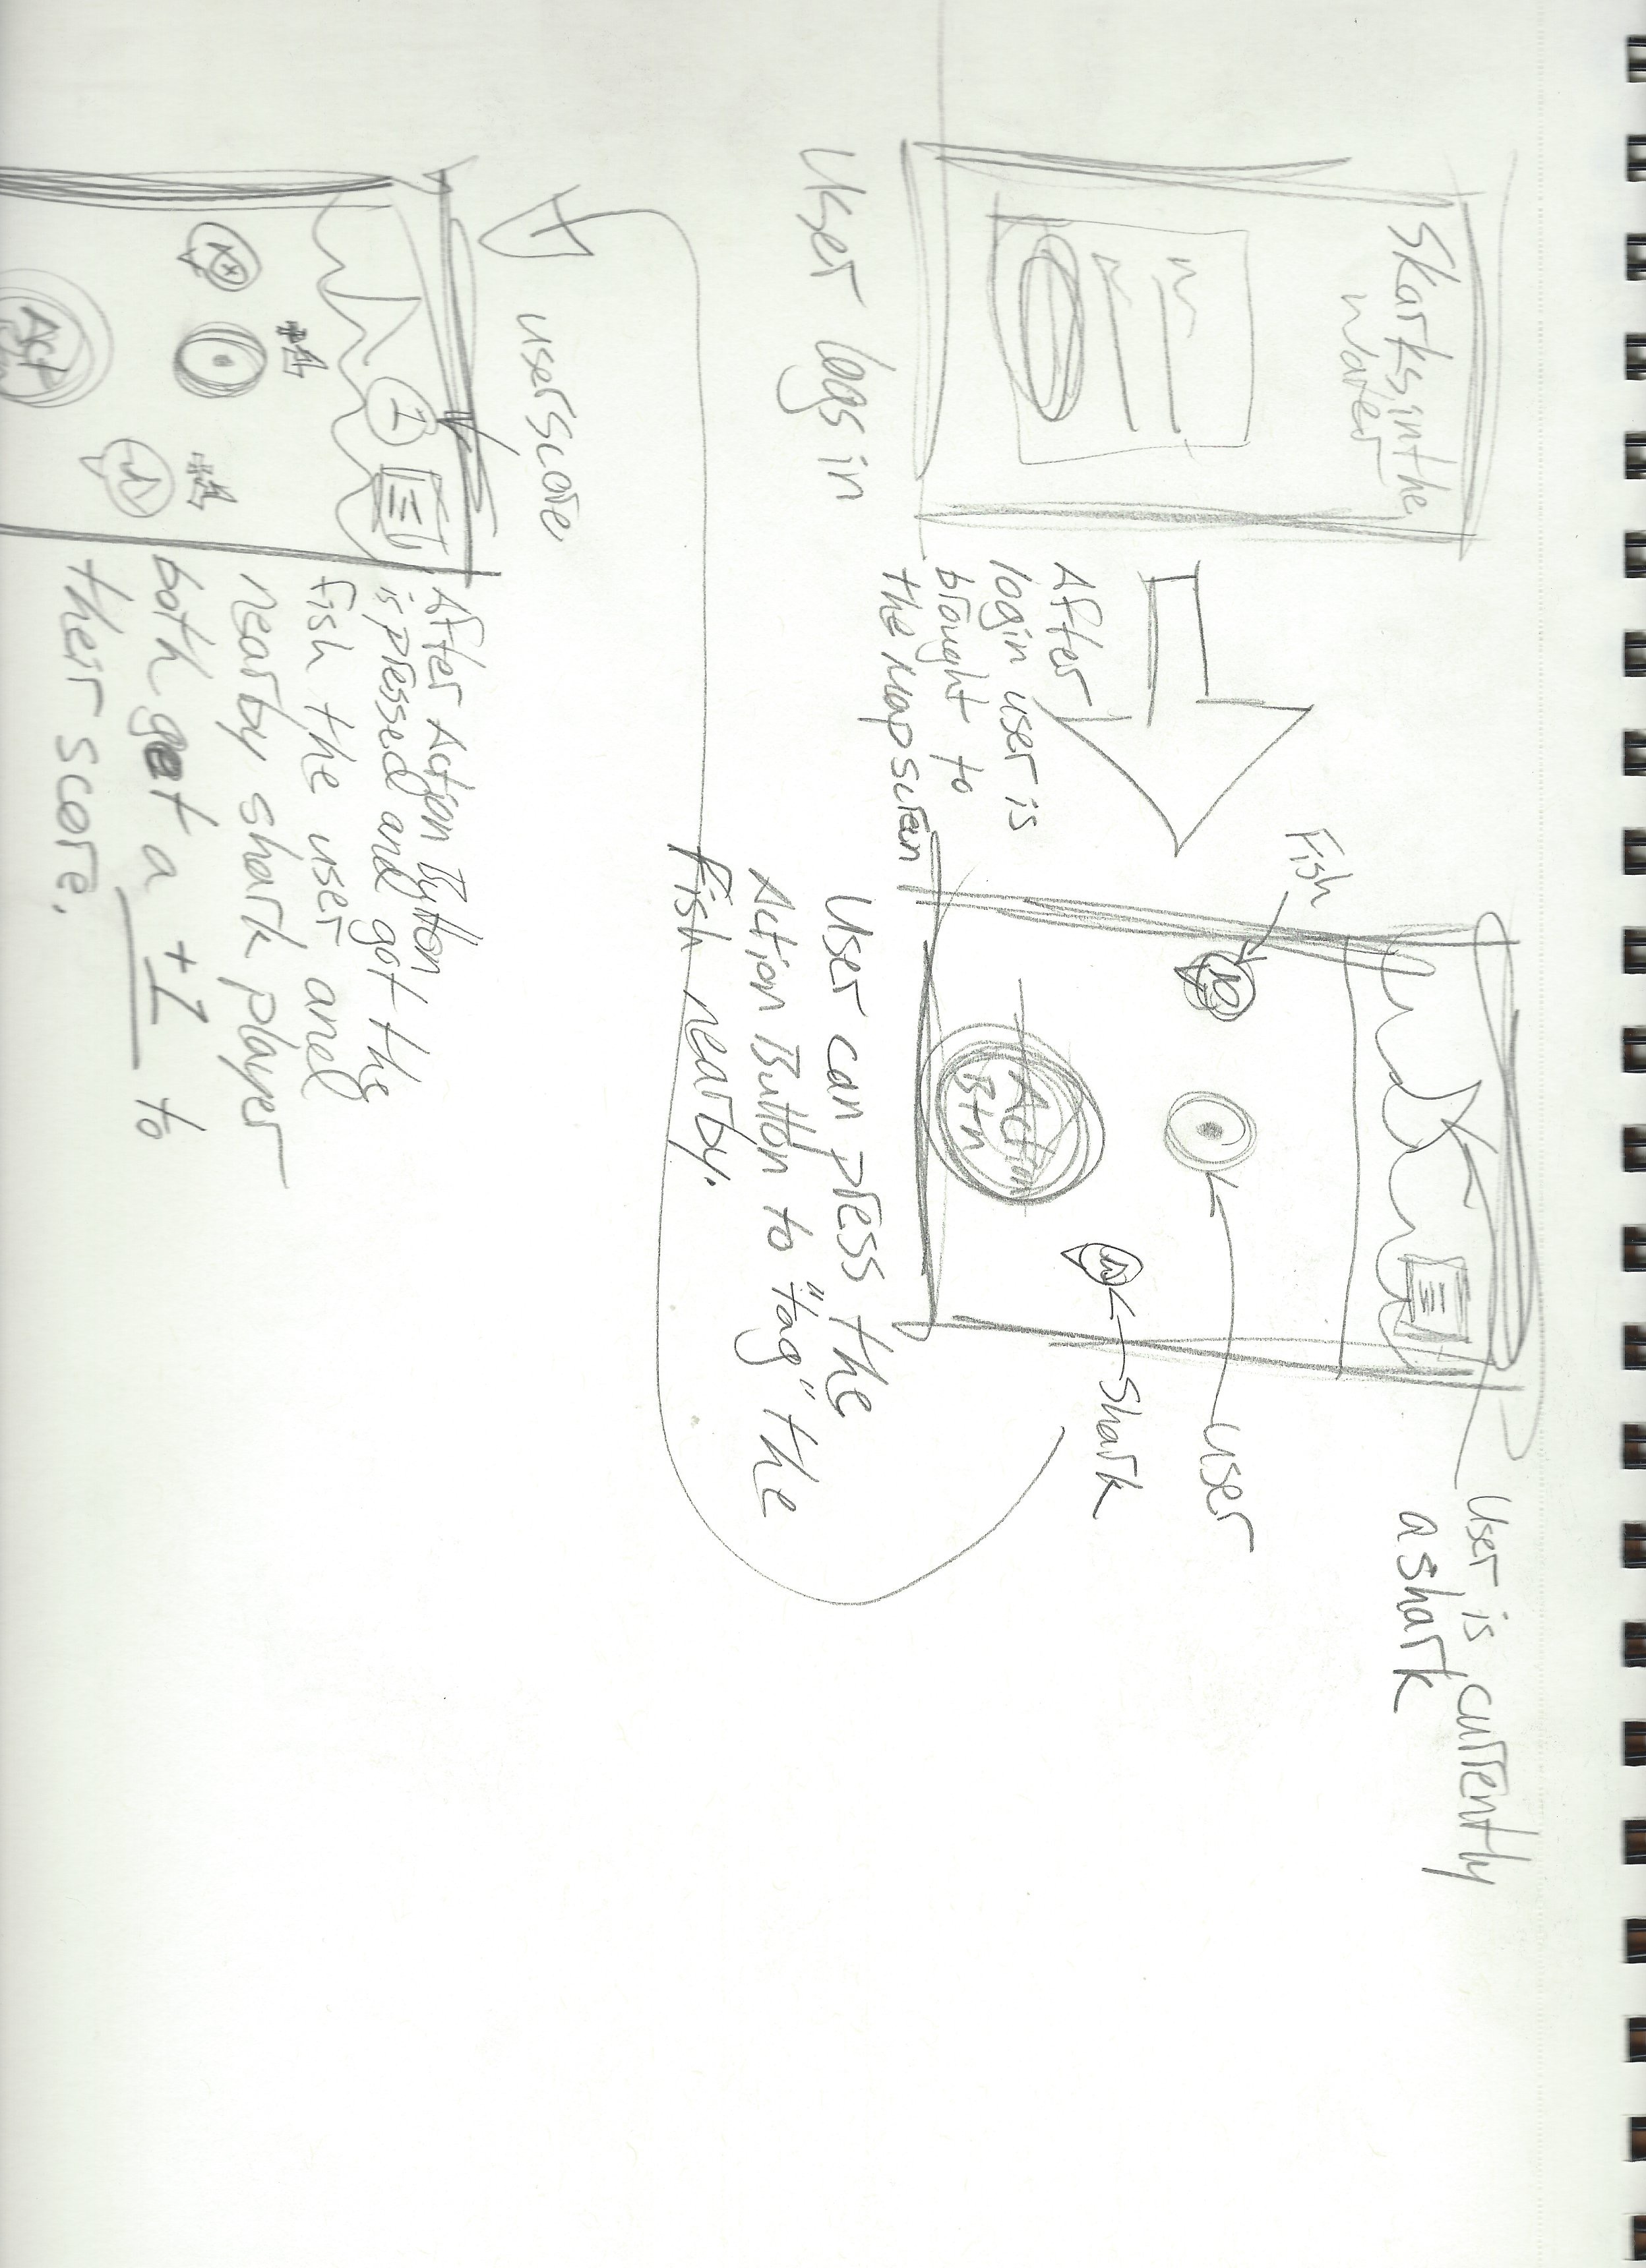 Skarks in the
Water
User logs in
After
login user is
brought to
the Map screen
Fish
User
Shark
User is currently
a shark
Action
Btn
User can press the
Action Button to "tag" the
fish nearby.
user score
1
+1
+1
Act
After Action Button
is pressed and got the
fish the user and
nearby shark player
both get a +1 to
their score.